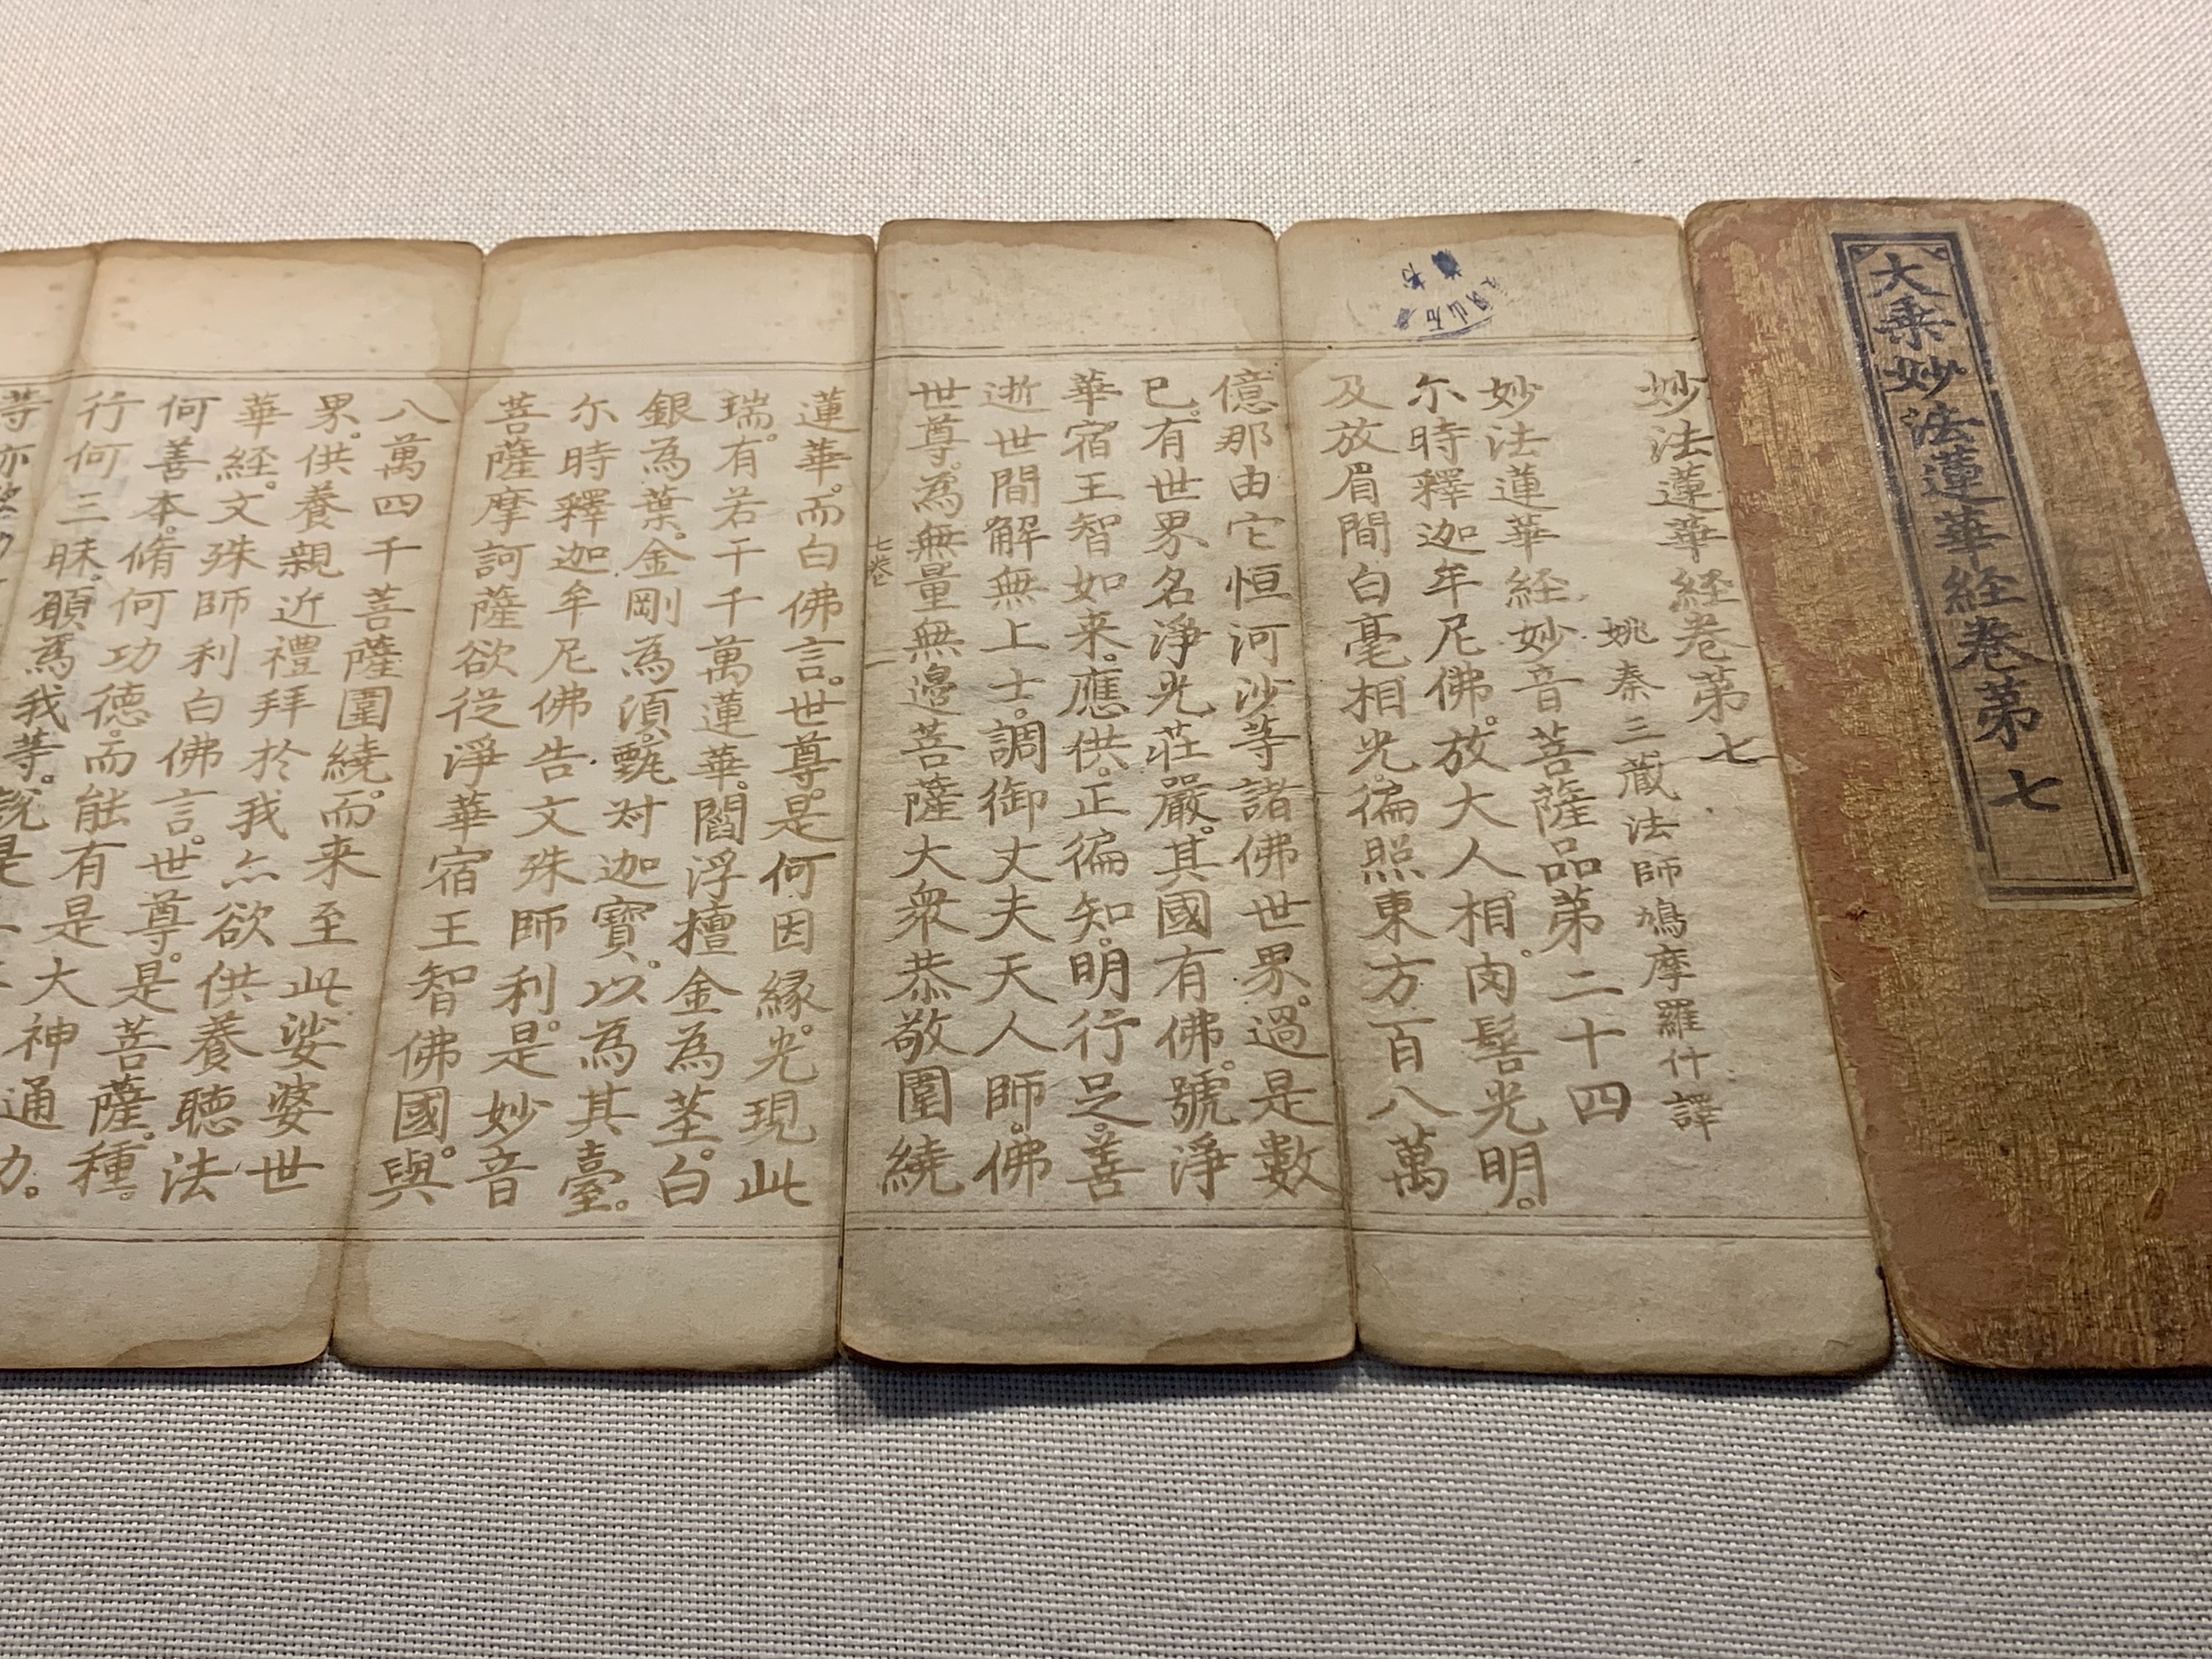 大乗妙法蓮華経卷第七
妙法蓮華経卷第七
姚秦三蔵法師鳩摩羅什譯
妙法蓮華経妙音菩薩品第二十四
尔時釋迦牟尼佛。放大人相。肉髻光明。
及放眉間白毫相光。徧照東方百八萬
億那由它恒河沙等諸佛世界。過是數
已。有世界名淨光莊嚴。其國有佛。號淨
華宿王智如来。應供。正徧知。明行足。善
逝世間解無上士。調御丈夫天人師。佛
世尊。為無量無邊菩薩大衆恭敬圍繞
七卷 一
蓮華。而白佛言。世尊。是何因縁。光現此
瑞。有若干千萬蓮華。閻浮檀金為茎。白
銀為葉。金剛為湏。甄对迦寶。以為其臺。
尔時釋迦牟尼佛告文殊師利。是妙音
菩薩摩訶薩欲從淨華宿王智佛國。與
八萬四千菩薩圍繞。而来至此娑婆世
界。供養親近禮拜於我亦欲供養聽法
華経。文殊師利白佛言。世尊。是菩薩。種
何善本。脩何功德。而能有是大神通力。
行何三昧。願為我等。說是
等亦